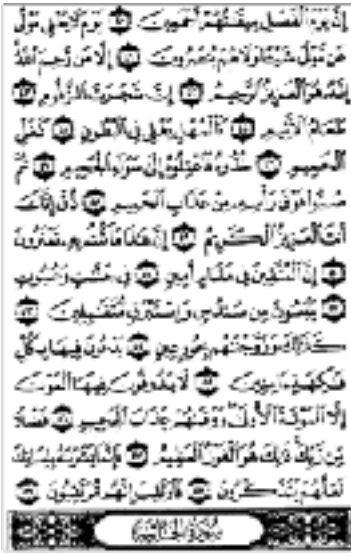 إِنَّ يَوْمَ الْفَصْلِ مِيقَاتُهُمْ أَجْمَعِينَ ۝٤٠ يَوْمَ لَا يُغْنِي مَوْلًى
عَن مَّوْلًى شَيْئًا وَلَا هُمْ يُنصَرُونَ ۝٤١ إِلَّا مَن رَّحِمَ اللَّهُ
إِنَّهُ هُوَ الْعَزِيزُ الرَّحِيمُ ۝٤٢ إِنَّ شَجَرَتَ الزَّقُّومِ ۝٤٣
طَعَامُ الْأَثِيمِ ۝٤٤ كَالْمُهْلِ يَغْلِي فِي الْبُطُونِ ۝٤٥ كَغَلْيِ
الْحَمِيمِ ۝٤٦ خُذُوهُ فَاعْتِلُوهُ إِلَىٰ سَوَاءِ الْجَحِيمِ ۝٤٧ ثُمَّ
صُبُّوا فَوْقَ رَأْسِهِ مِنْ عَذَابِ الْحَمِيمِ ۝٤٨ ذُقْ إِنَّكَ
أَنتَ الْعَزِيزُ الْكَرِيمُ ۝٤٩ إِنَّ هَٰذَا مَا كُنتُم بِهِ تَمْتَرُونَ
۝٥٠ إِنَّ الْمُتَّقِينَ فِي مَقَامٍ أَمِينٍ ۝٥١ فِي جَنَّاتٍ وَعُيُونٍ
۝٥٢ يَلْبَسُونَ مِن سُندُسٍ وَإِسْتَبْرَقٍ مُّتَقَابِلِينَ ۝٥٣
كَذَٰلِكَ وَزَوَّجْنَاهُم بِحُورٍ عِينٍ ۝٥٤ يَدْعُونَ فِيهَا بِكُلِّ
فَاكِهَةٍ آمِنِينَ ۝٥٥ لَا يَذُوقُونَ فِيهَا الْمَوْتَ
إِلَّا الْمَوْتَةَ الْأُولَىٰ وَوَقَاهُمْ عَذَابَ الْجَحِيمِ ۝٥٦ فَضْلًا
مِّن رَّبِّكَ ذَٰلِكَ هُوَ الْفَوْزُ الْعَظِيمُ ۝٥٧ فَإِنَّمَا يَسَّرْنَاهُ بِلِسَانِكَ
لَعَلَّهُمْ يَتَذَكَّرُونَ ۝٥٨ فَارْتَقِبْ إِنَّهُم مُّرْتَقِبُونَ ۝٥٩
سُورَةُ الْجَاثِيَةِ